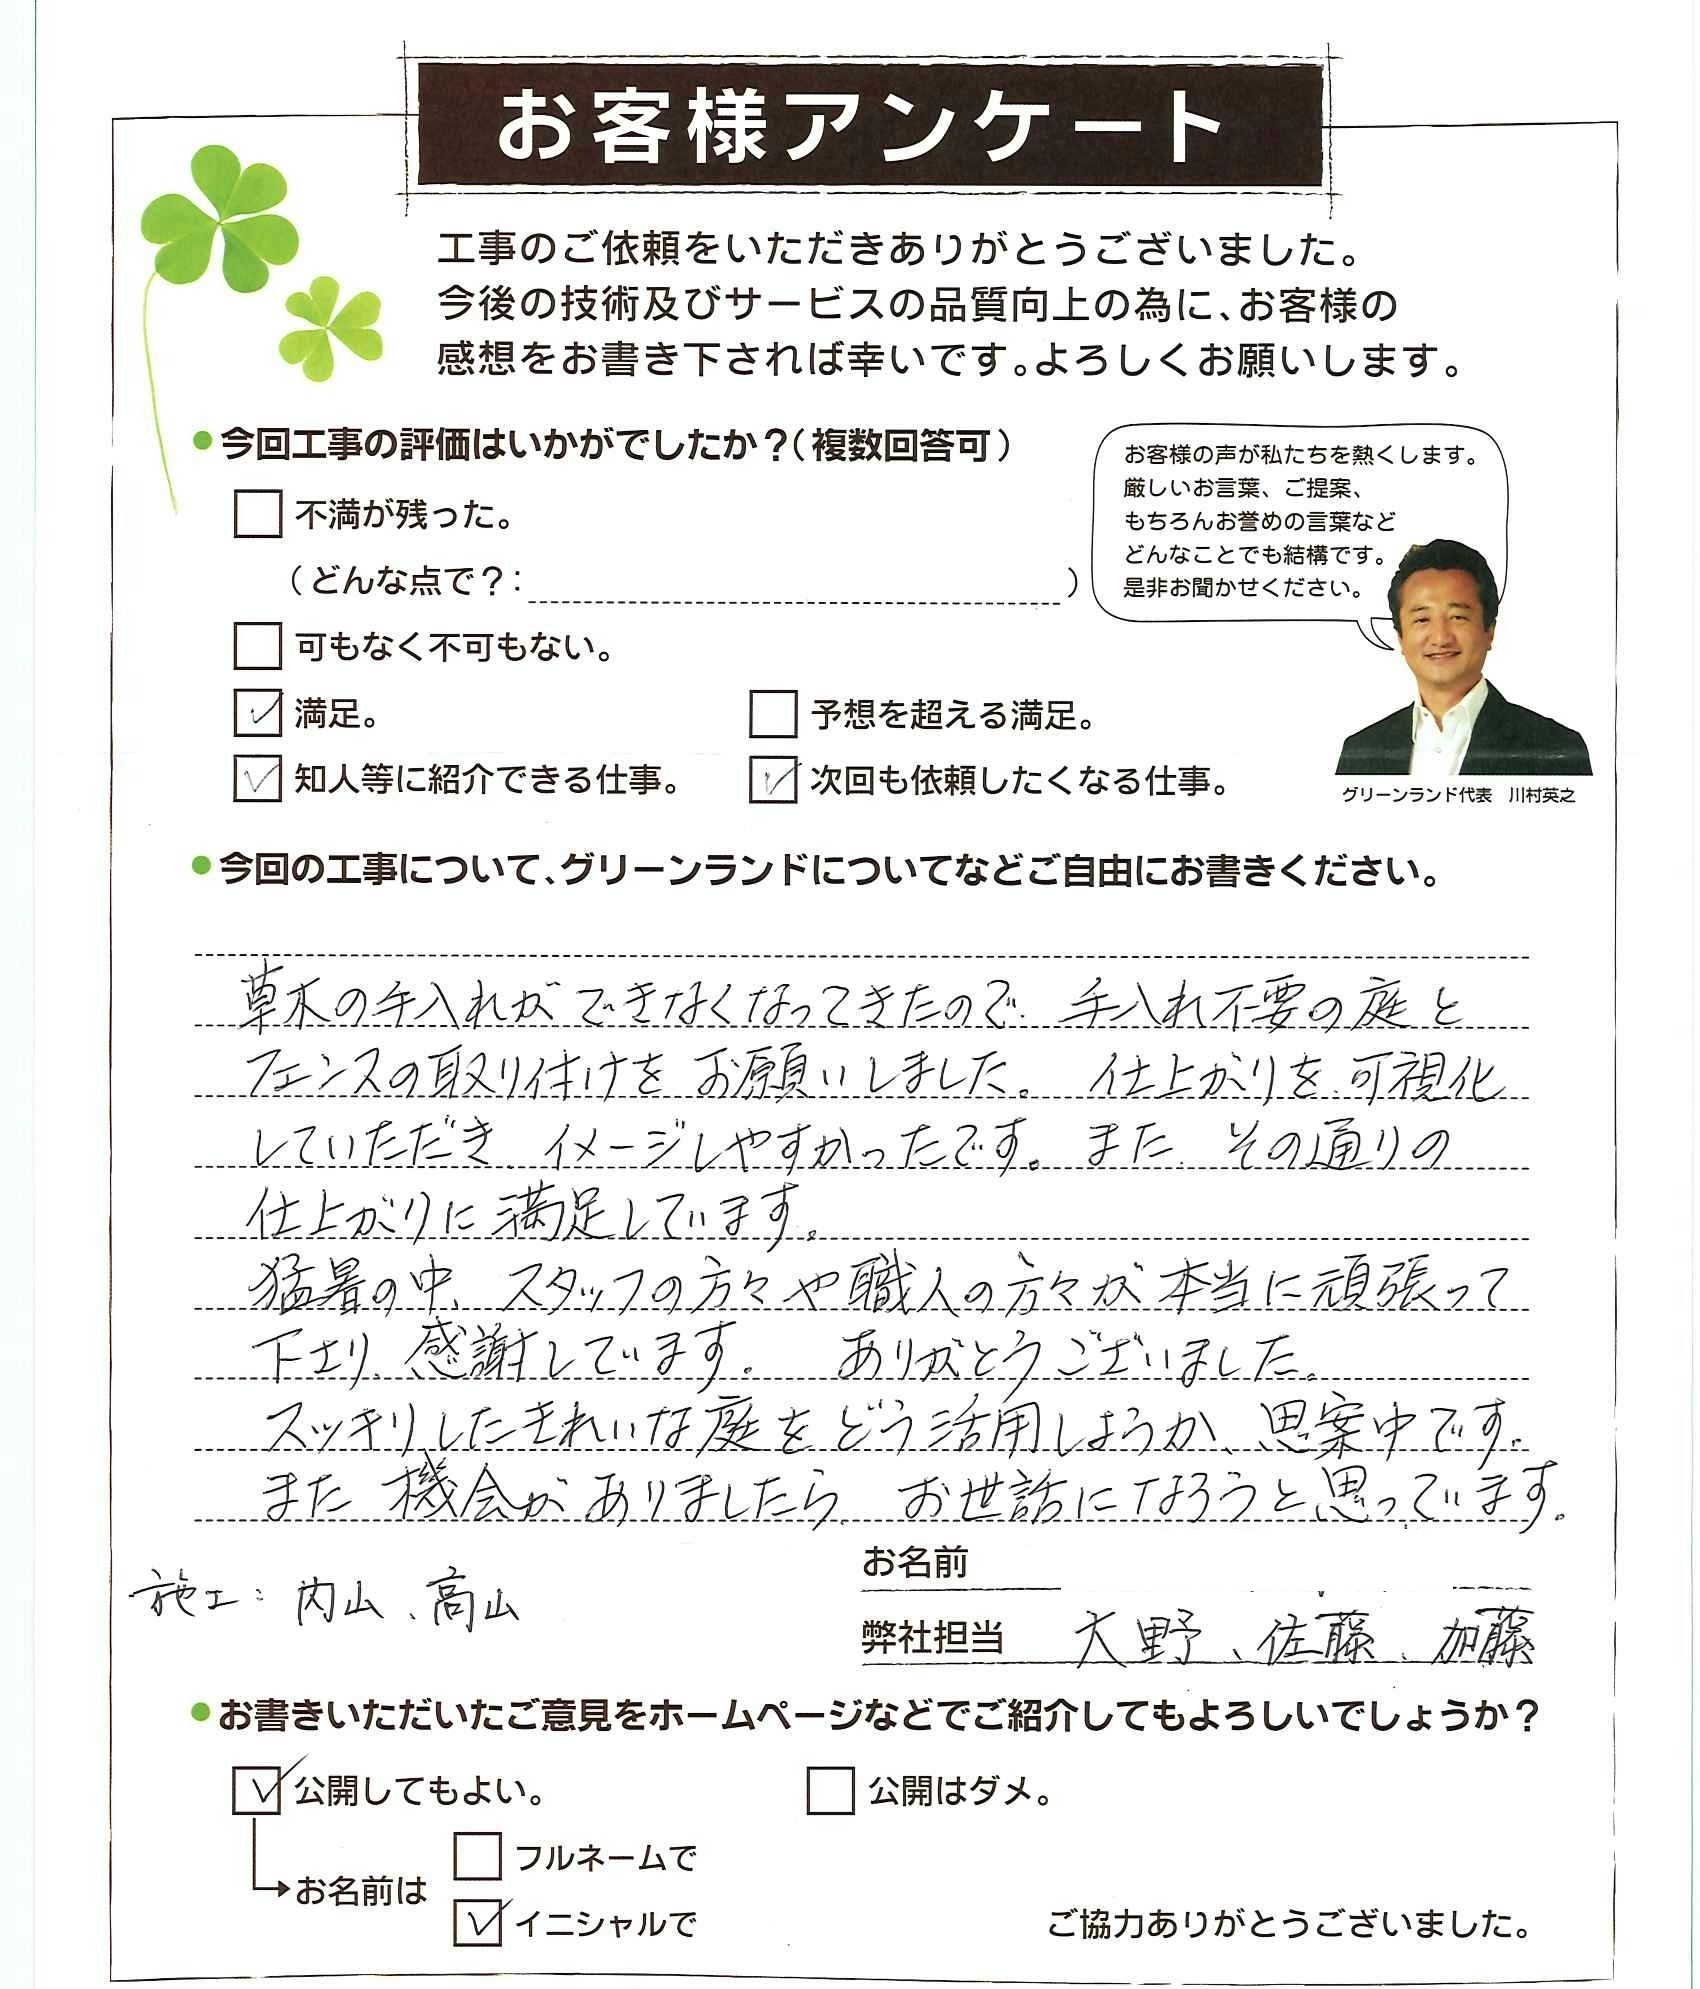 お客様アンケート
工事のご依頼をいただきありがとうございました。
今後の技術及びサービスの品質向上の為に、お客様の
感想をお書き下されば幸いです。よろしくお願いします。
●今回工事の評価はいかがでしたか?(複数回答可)
不満が残った。
(どんな点で?: )
可もなく不可もない。
満足。
予想を超える満足。
知人等に紹介できる仕事。
次回も依頼したくなる仕事。
お客様の声が私たちを熱くします。
厳しいお言葉、ご提案、
もちろんお誉めの言葉など
どんなことでも結構です。
是非お聞かせください。
グリーンランド代表 川村英之
●今回の工事について、グリーンランドについてなどご自由にお書きください。
草木の手入れができなくなってきたので、手入れ不要の庭と
フェンスの取り付けをお願いしました。 仕上がりを可視化
していただき、イメージしやすかったです。また、その通りの
仕上がりに満足しています。
猛暑の中、スタッフの方々や職人の方々が本当に頑張って
下さり、感謝しています。 ありがとうございました。
スッキリしたきれいな庭をどう活用しようか、思案中です。
また機会がありましたら、お世話になろうと思っています。
施工:内山、高山
お名前
弊社担当 大野、佐藤、加藤
●お書きいただいたご意見をホームページなどでご紹介してもよろしいでしょうか?
公開してもよい。
公開はダメ。
お名前は
フルネームで
イニシャルで
ご協力ありがとうございました。